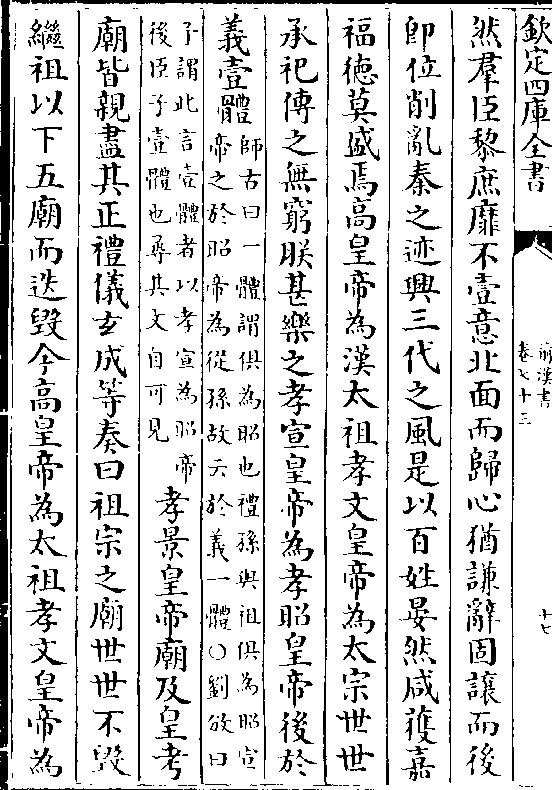 欽定四庫全書
前漢書
卷七十三
十七
然羣臣黎庶靡不壹意北面而歸心猶謙辭固讓而後
即位削亂秦之迹興三代之風是以百姓晏然咸獲嘉
福德莫盛焉高皇帝為漢太祖孝文皇帝為太宗世世
承祀傳之無窮朕甚樂之孝宣皇帝為孝昭皇帝後於
義壹體
師古曰一體謂俱為昭也禮孫與祖俱為昭宣
帝之於昭帝為從孫故云於義一體〇劉攽曰
子謂此言壹體者以孝宣為昭帝
後臣子壹體也尋其文自可見
孝景皇帝廟及皇考
廟皆親盡其正禮儀玄成等奏曰祖宗之廟世世不毀
繼祖以下五廟而迭毀今高皇帝為太祖孝文皇帝為